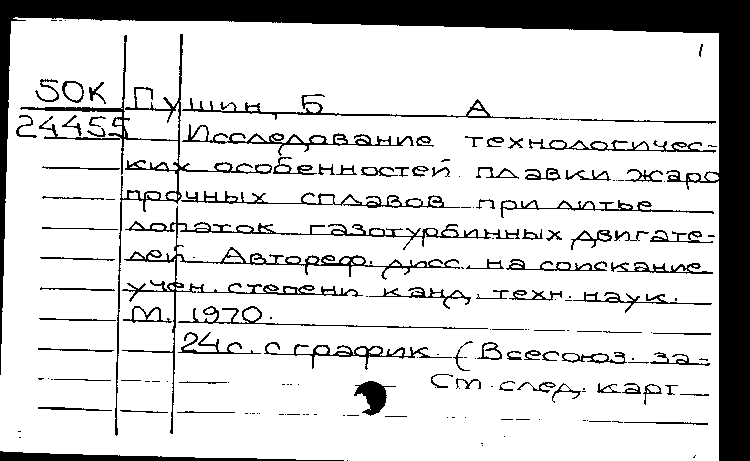 1
50К Пушин, Б А
24455 Исследование технологичес-
ких особенностей плавки жаро
прочных сплавов при литье
лопаток газотурбинных двигате-
лей. Автореф. дисс. на соискание
учен. степени канд. техн. наук.
М. 1970.
24 с. с график. (Всесоюз. за-
См. след. карт